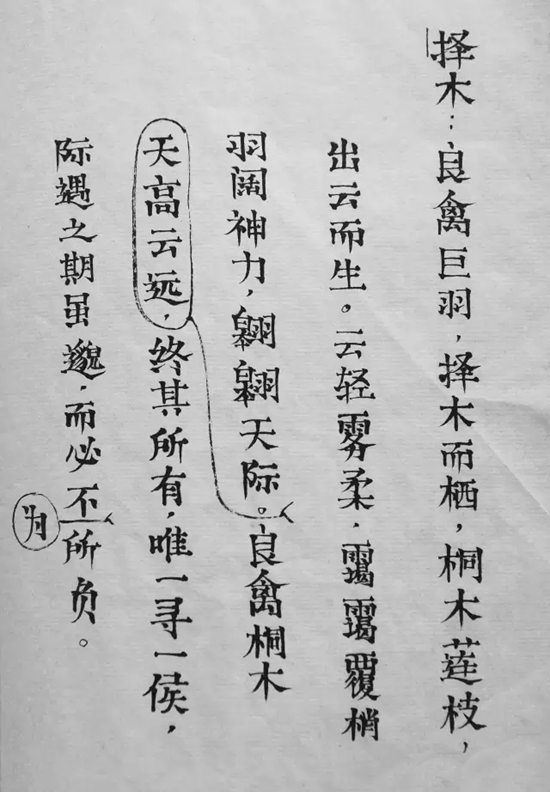 择木：良禽巨羽，择木而栖，桐木莲枝，
出云而生。云轻雾柔，霭霭覆梢
羽阔神力，翱翱天际。良禽桐木
天高云远，终其所有，唯一寻一侯，
际遇之期虽邈，而必不所负。
为